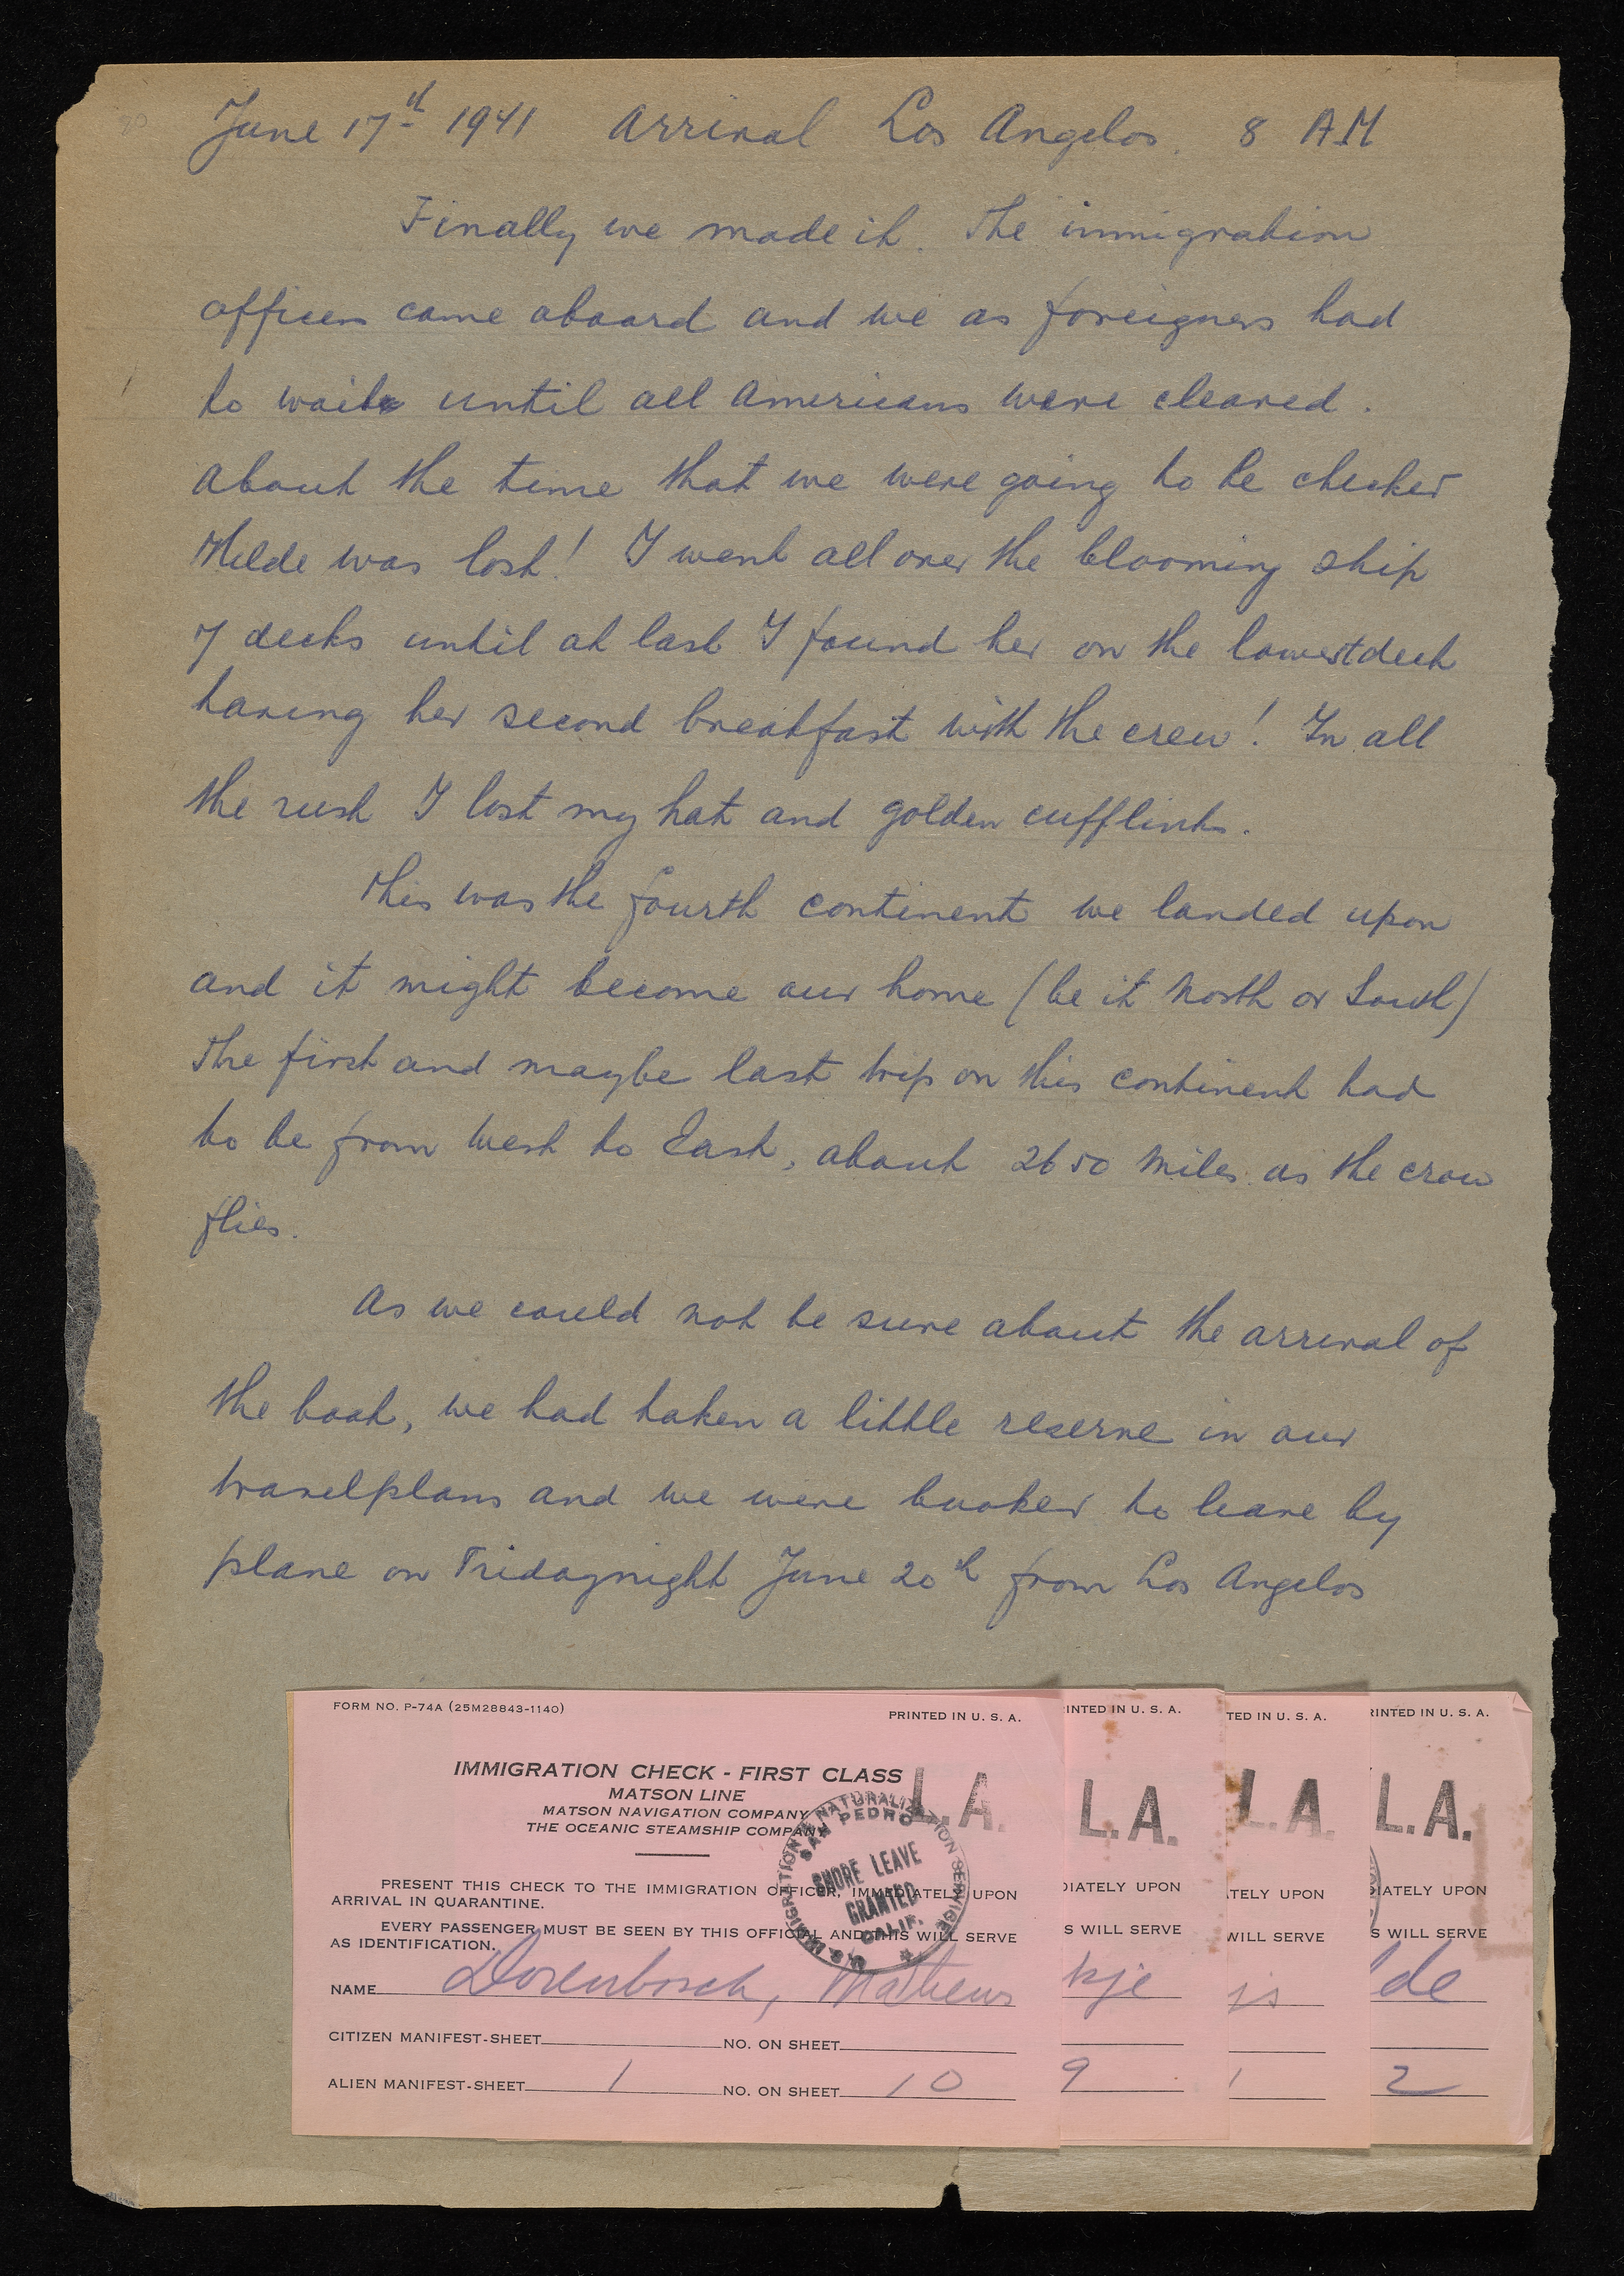 June 17th 1941 Arrival Los Angelos. 8 A.M
Finally we made it. The immigration
officers came aboard and we as foreigners had
to wait until all Americans were cleared.
About the time that we were going to be checked
Hilde was lost! I went all over the blooming ship
7 decks until at last I found her on the lowestdeck
having her second breakfast with the crew! In all
the rush I lost my hat and golden cufflinks.
This was the fourth continent we landed upon
and it might become our home (be it North or South)
The first and maybe last trip on this continent had
to be from West to East, about 2650 miles as the crow
flies.
As we could not be sure about the arrival of
the boat, we had taken a little reserve in our
travelplans and we were booked to leave by
plane on Fridaynight June 20th from Los Angelos
FORM NO. P-74A (25M28843-1140)
PRINTED IN U. S. A.
INTED IN U. S. A.
TED IN U. S. A.
RINTED IN U. S. A.
IMMIGRATION CHECK - FIRST CLASS
MATSON LINE
MATSON NAVIGATION COMPANY
THE OCEANIC STEAMSHIP COMPANY
L.A.
L.A.
L.A.
L.A.
U.S. IMMIGRATION & NATURALIZATION SERVICE
SAN PEDRO
SHORE LEAVE
GRANTED
CALIF.
PRESENT THIS CHECK TO THE IMMIGRATION OFFICER, IMMEDIATELY UPON
ARRIVAL IN QUARANTINE.
EVERY PASSENGER MUST BE SEEN BY THIS OFFICIAL AND THIS WILL SERVE
AS IDENTIFICATION.
DIATELY UPON
S WILL SERVE
TELY UPON
WILL SERVE
DIATELY UPON
S WILL SERVE
NAME Dorenbosch, Matheus
kje
js
lde
CITIZEN MANIFEST-SHEET NO. ON SHEET
ALIEN MANIFEST-SHEET 1 NO. ON SHEET 10
9
1
2